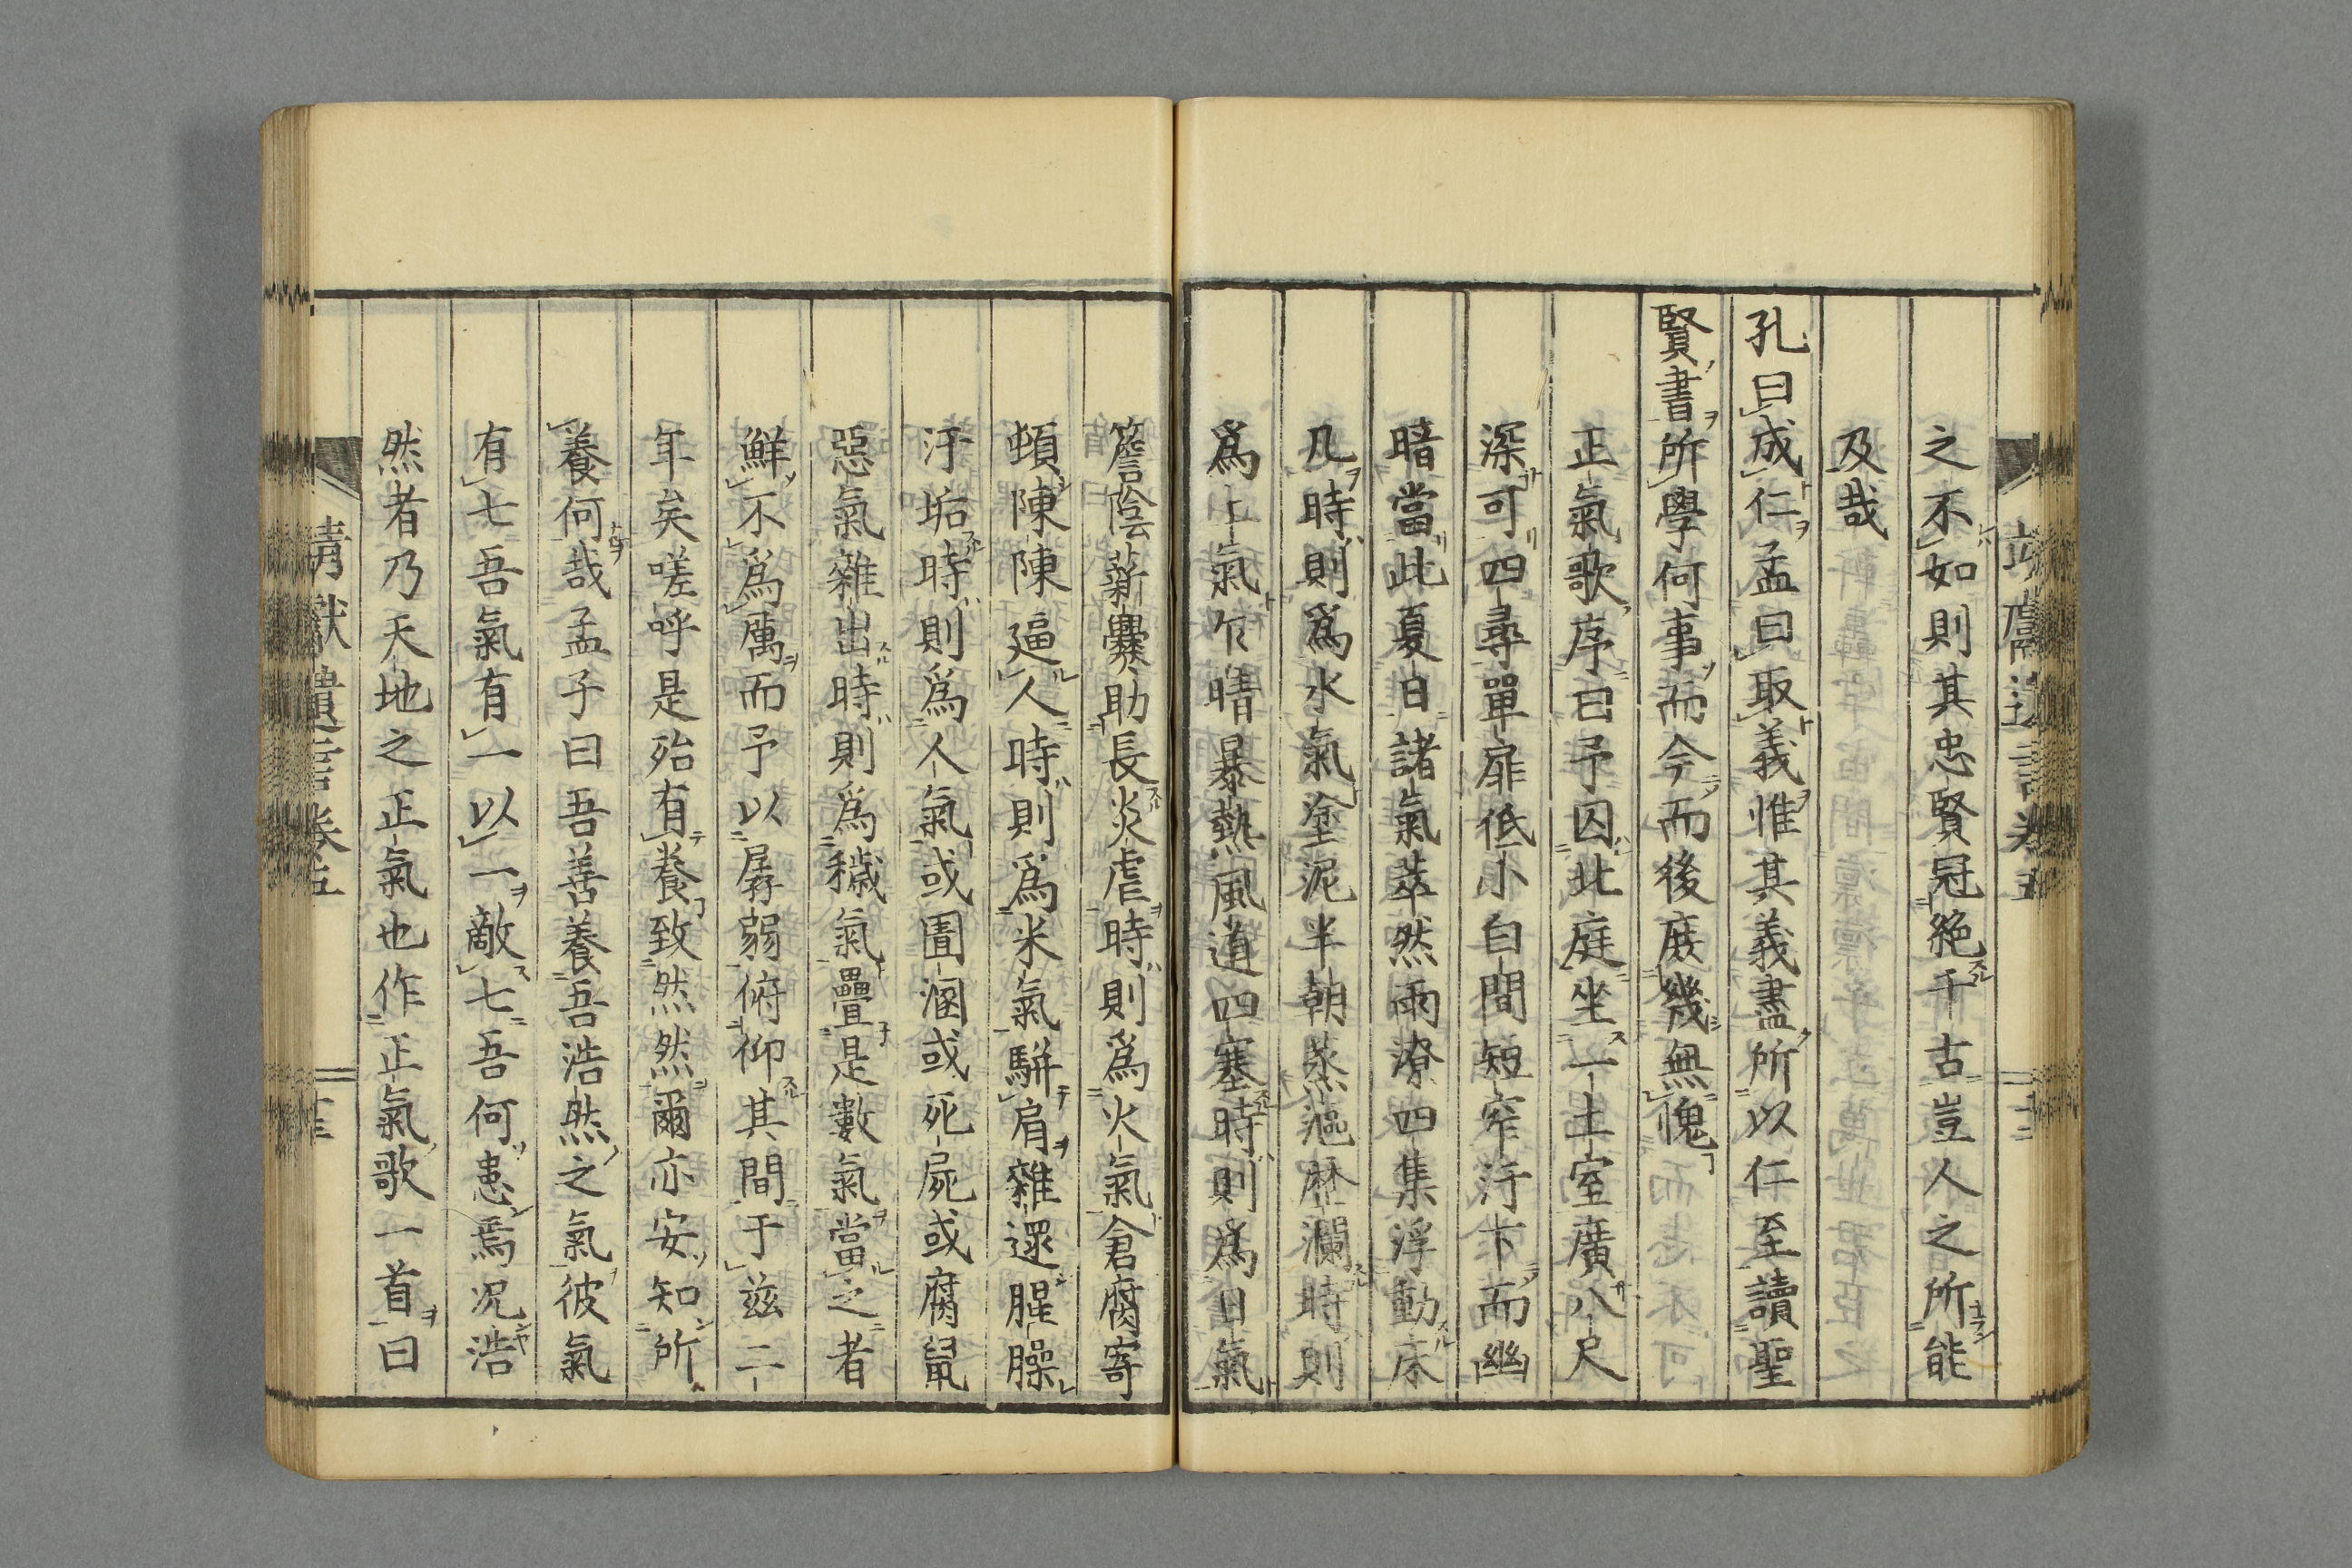 之不如則其忠賢冠絶千古豈人之所能
及哉
孔曰成仁孟曰取義惟其義盡所以仁至讀聖
賢書所學何事而今而後庻幾無愧
正氣歌序曰予囚北庭坐一土室廣八尺
深可四尋單扉低小白間短窄汙下而幽
暗當此夏日諸氣萃然雨潦四集浮動床
几時則爲水氣塗泥半朝蒸漚歴瀾時則
爲土氣乍晴暴熱風道四塞時則爲日氣
簷陰薪爨助長炎虐時則爲火氣倉腐寄
頓陳陳逼人時則爲米氣騈肩雜遝腥臊
汙垢時則爲人氣或圊溷或死屍或腐鼠
惡氣雜出時則爲穢氣疊是數氣當之者
鮮不爲厲而予以孱弱俯仰其間于兹二
年矣嗟呼是殆有養致然然爾亦安知所
養何哉孟子曰吾善養吾浩然之氣彼氣
有七吾氣有一以一敵七吾何患焉况浩
然者乃天地之正氣也作正氣歌一首曰
靖獻遺言卷五